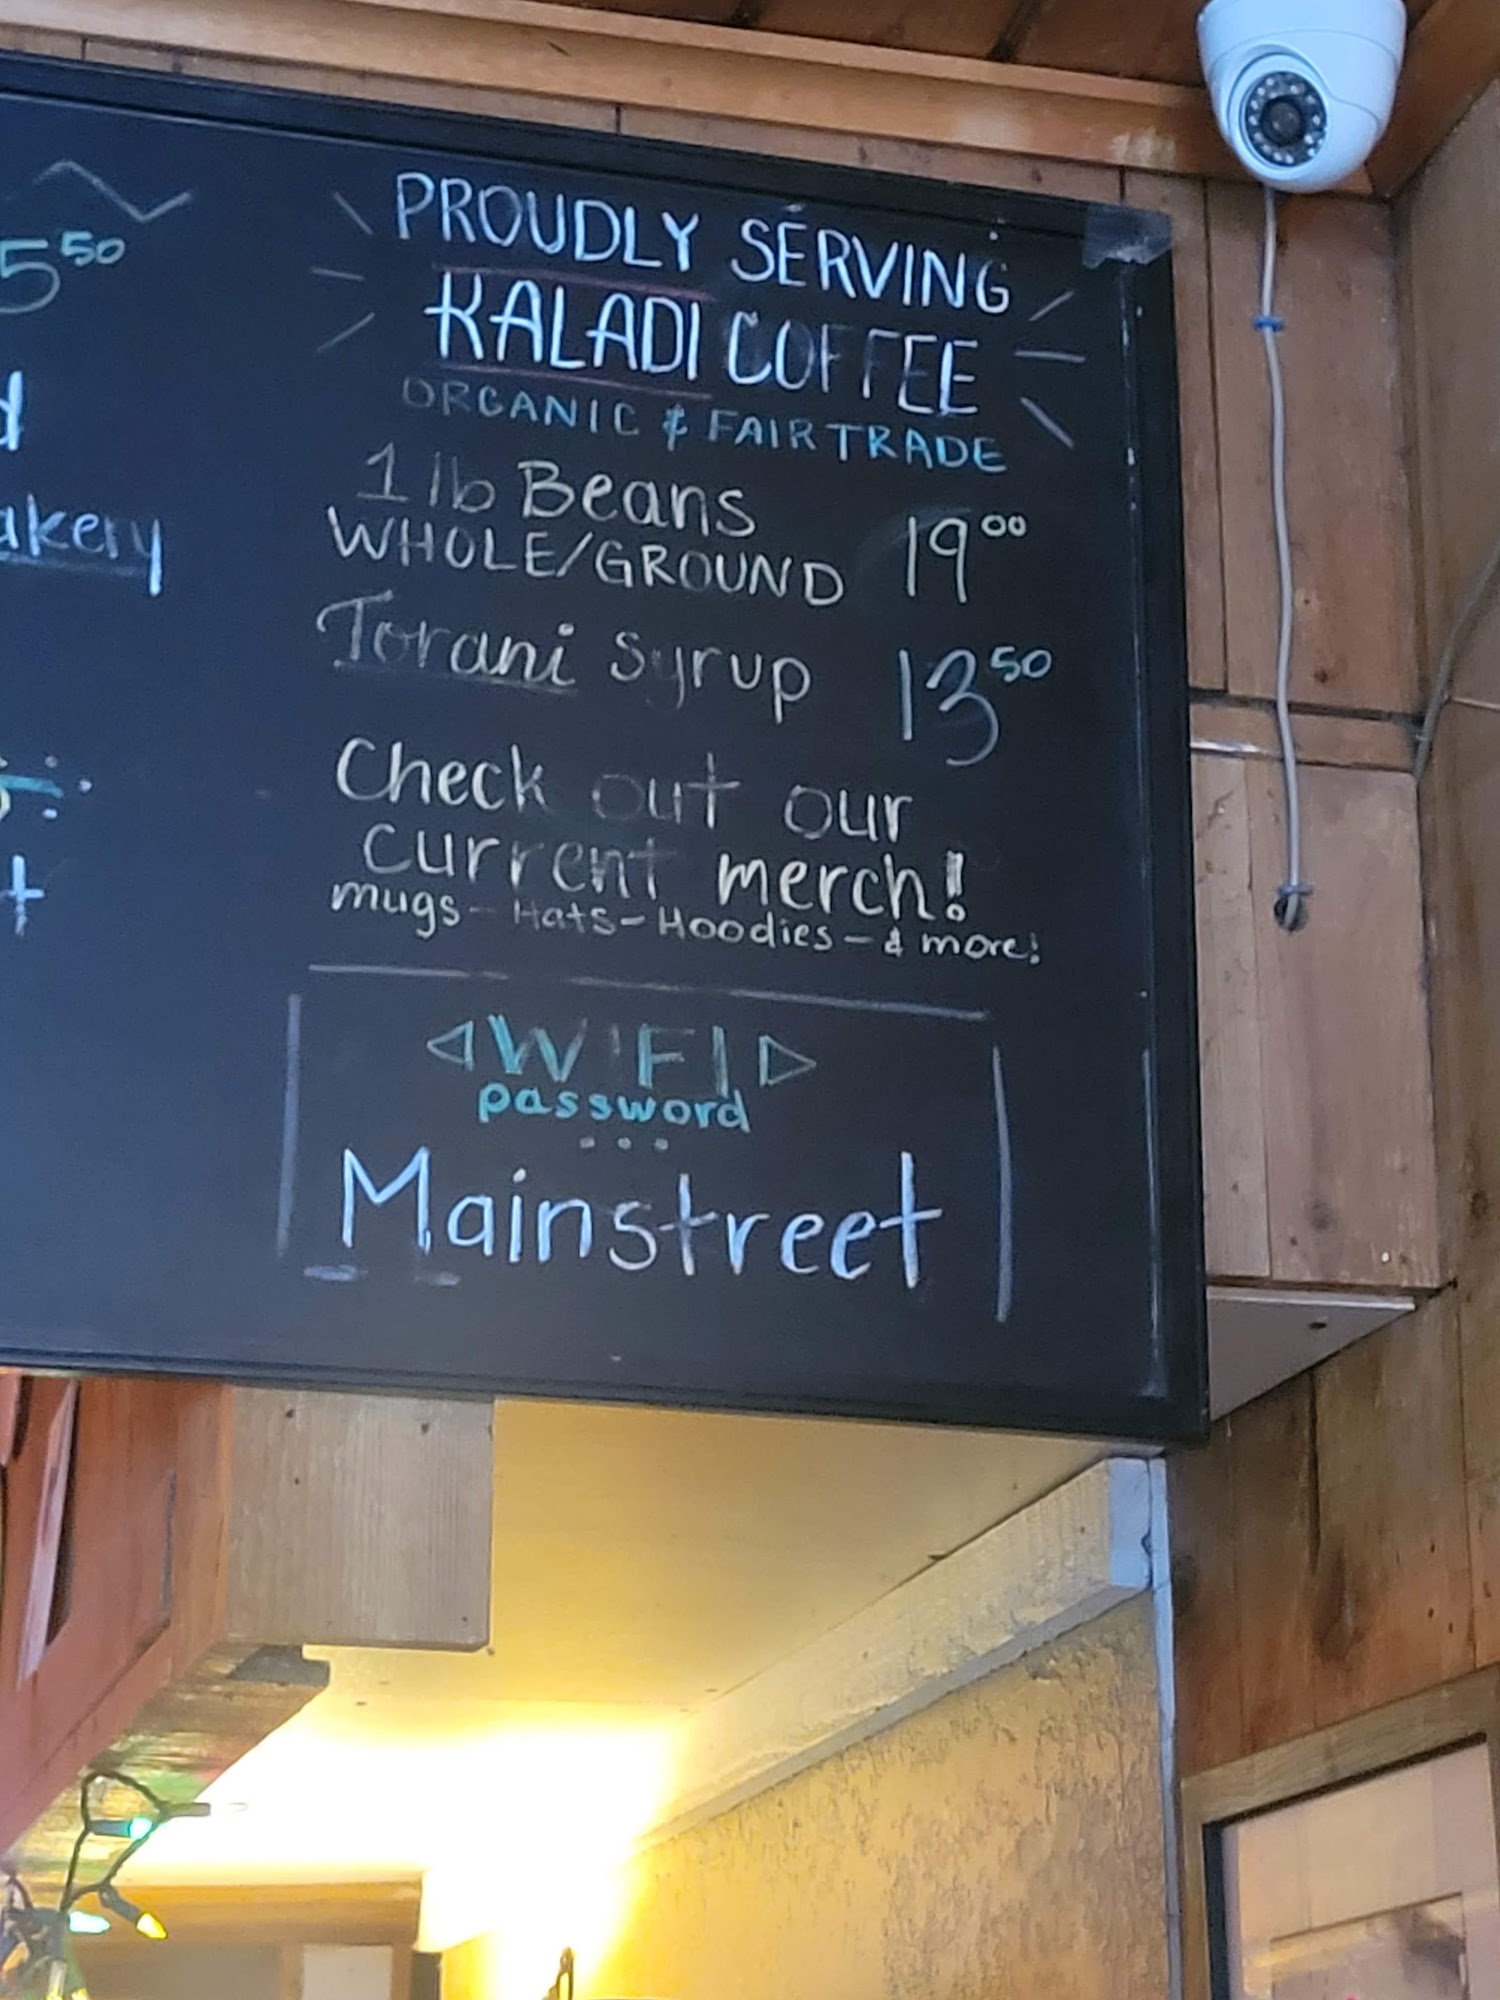 5⁵⁰
PROUDLY SERVING
KALADI COFFEE
ORGANIC & FAIR TRADE
1 lb Beans
WHOLE/GROUND 19⁰⁰
Torani Syrup 13⁵⁰
Check out our
current merch!
mugs - Hats - Hoodies - & more!
◁ WIFI ▷
password
...
Mainstreet